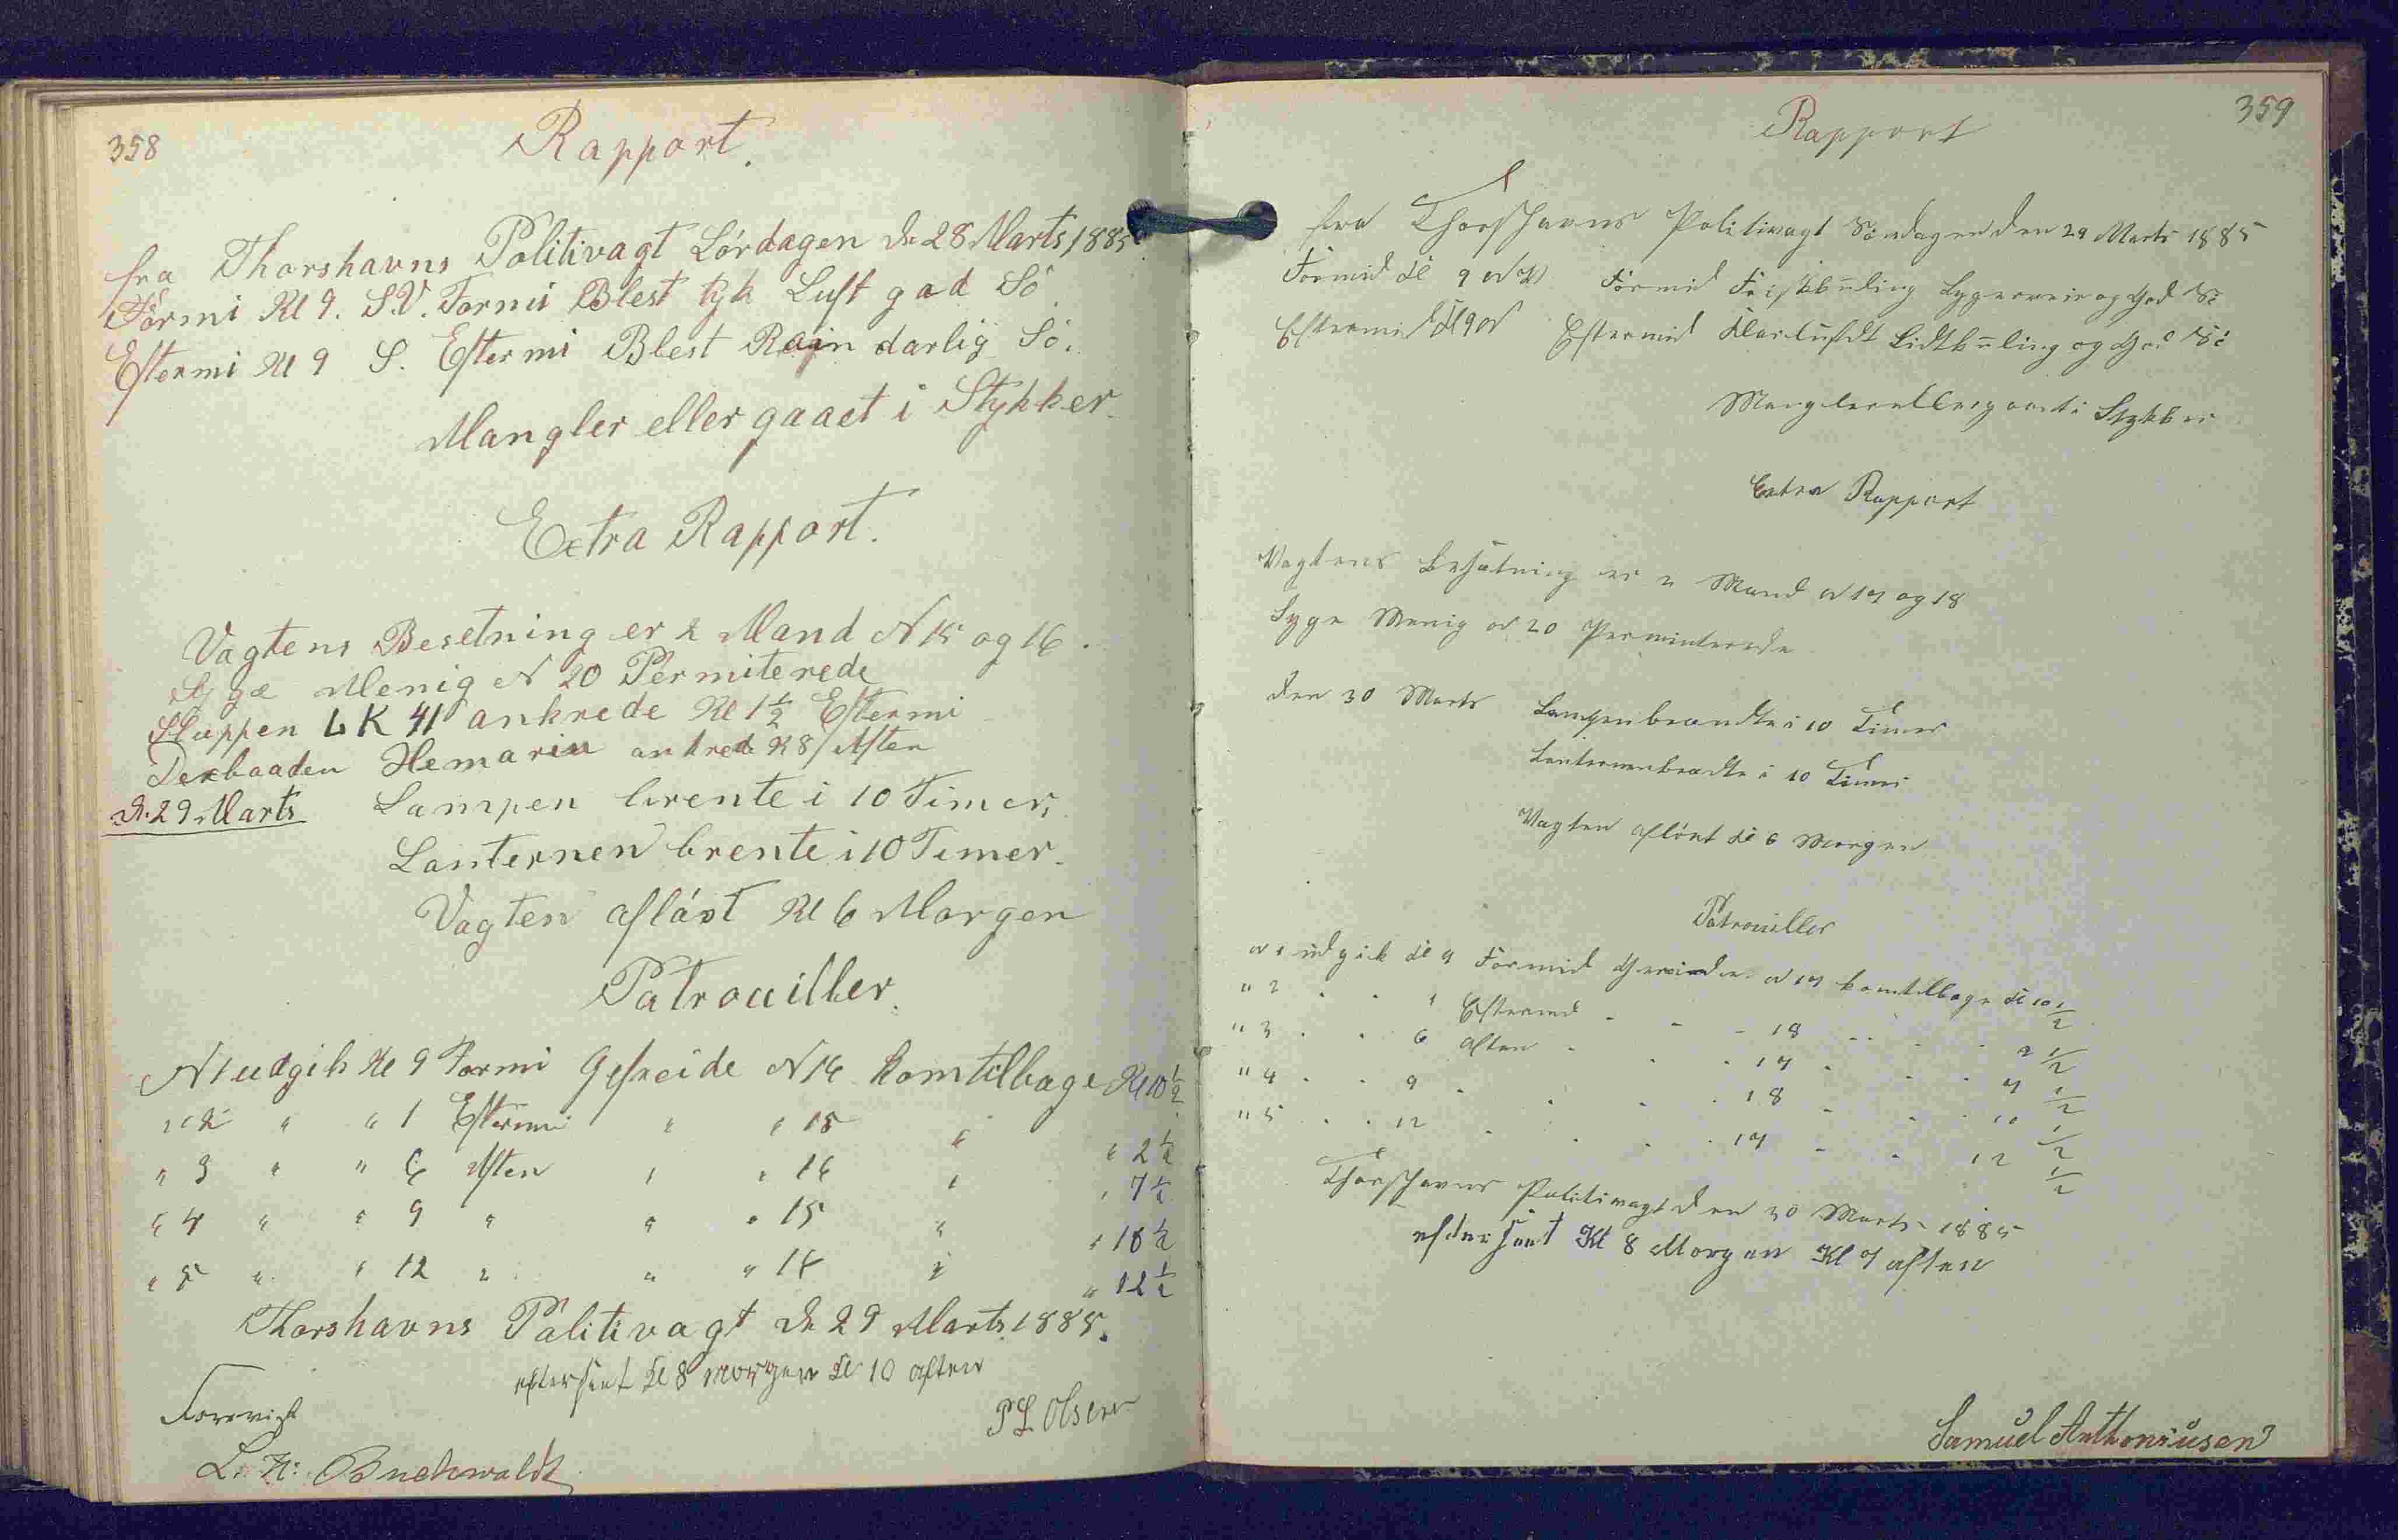 358
Rapport.
fra Thorshavns Politivagt Lördagen d. 28 Marts 1885
Formi Kl 9. S.V. Formi Blest tyk Luft god Sö.
Eftermi Kl 9 S. Eftermi Blest Rajn darlig Sö.
Mangler eller gaaet i Stykker.
Extra Rapport.
Vagtens Besetning er 2 Mand N 15 og 16.
Syge Menig N 20 Permiterede
Sluppen LK 41 ankrede Kl 1 1/2 Eftermi
Dexbaaden Hemaria ankrede K 8 Aften
d. 29 Marts Lampen brente i 10 Timer,
Lanternen brente i 10 Timer.
Vagten aflöst Kl 6 Morgen
Patrouiller.
N 1 udgik Kl 9 Formi Gefreide N 16 kom tilbage Kl 10 1/2
" 2 " " 1 Eftermi " " 15 " " 2 1/2
" 3 " " 6 Aften " " 16 " " 7 1/2
" 4 " " 9 " " " 15 " " 10 1/2
" 5 " " 12 " " " 16 " " 12 1/2
Thorshavns Politivagt d. 29 Marts 1885.
efterseet Kl 8 morgen Kl 10 aften
Forevist
P L Olsen
L. H: Buchwaldt
359
Rapport
fra Thorshavns Politivagt Söndagen den 29 Marts 1885
Formid Kl 9 Formid Friskkuling og God Sö
Eftermid Kl 9 Eftermid Klarluft Lidtkuling og God Sö
Mangler eller gaaet i Stykker
Extra Rapport
Vagtens Besætning er 2 Mand N 17 og 18
Syge Menig N 20 Permiterede
den 30 Marts Lampen brændte i 10 Timer
Lanternen brændte i 10 Timer
Vagten aflöst Kl 6 Morgen
Patrouiller
N 1 udgik Kl 9 Formid N 17 kom tilbage Kl 10 1/2
" 2 . . 1 Eftermid - - - 18 - - 2 1/2
" 3 . . 6 Aften - - - 17 - - 7 1/2
" 4 . . 9 - - - - 18 - - 10 1/2
" 5 . . 12 - - - - 17 - - 12 1/2
Thorshavns Politivagt den 30 Marts 1885
efterseet Kl 8 Morgen Kl 7 aften
Samuel Anthoniusen